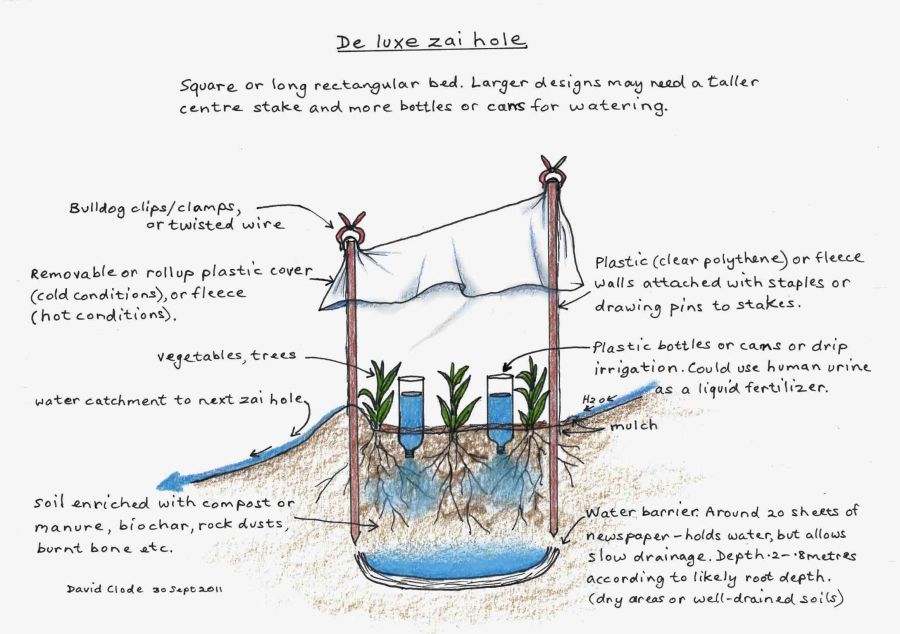 De luxe zai hole
Square or long rectangular bed. Larger designs may need a taller
centre stake and more bottles or cans for watering.
Bulldog clips/clamps,
or twisted wire
Removable or rollup plastic cover
(cold conditions), or fleece
(hot conditions).
Plastic (clear polythene) or fleece
walls attached with staples or
drawing pins to stakes.
vegetables, trees
Plastic bottles or cans or drip
irrigation. Could use human urine
as a liquid fertilizer.
water catchment to next zai hole
H2O
mulch
Soil enriched with compost or
manure, biochar, rock dusts,
burnt bone etc.
Water barrier. Around 20 sheets of
newspaper - holds water, but allows
slow drainage. Depth .2 - .8 metres
according to likely root depth.
(dry areas or well-drained soils)
David Clode 30 Sept 2011